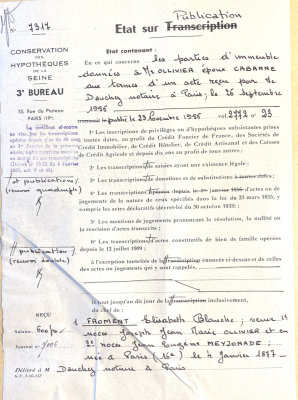 Publication
N° 7317
Etat sur Transcription
CONSERVATION
DES
HYPOTHÈQUES
DE LA
SEINE
3e BUREAU
35, Rue du Plateau
PARIS (19e)
Etat contenant :
En ce qui concerne les parties d'immeuble
données à Me OLLIVIER épouse CABANNE
aux termes d'un acte reçu par Me
Douchey notaire à Paris, le 26 septembre
1956
publié le 23 novembre 1956 vol. 2772 n° 23
1° Les inscriptions de privilèges ou d'hypothèques subsistantes prises
toutes dates, au profit du Crédit Foncier de France, des Sociétés de
Crédit Immobilier, de Crédit Hôtelier, de Crédit Artisanal et des Caisses
de Crédit Agricole et depuis dix ans au profit de tous autres ;
2° Les transcriptions de saisies ayant une existence légale ;
3° Les transcriptions de donations et de substitutions à toutes dates ;
4° Les transcriptions depuis le 1er janvier 1856 d'actes ou de
jugements de la nature de ceux spécifiés dans la loi du 23 mars 1855, y
compris les actes déclaratifs (décret-loi du 30 octobre 1935) ;
5° Les mentions de jugements prononçant la résolution, la nullité ou
la rescision d'actes transcrits ;
6° Les transcriptions d'actes constitutifs de bien de famille opérées
depuis le 12 juillet 1909 ;
à l'exception toutefois de la transcription énoncée ci-dessus et de celles
des actes ou jugements qui y sont rappelés,
+ publication
(renvoi quadruple)
publication
(renvoi double)
le tout jusqu'au jour de la transcription inclusivement,
du chef de :
REÇU
Salaires 600 fs
Journal n° 4006
1 FROMENT Elisabeth Blanche, veuve 1es
noces Joseph Jean Marie OLLIVIER et en
2es noces Jean Eugène MEYJONADE ;
née à Paris (16e) le 4 janvier 1897
Délivré à M Douchey notaire à Paris